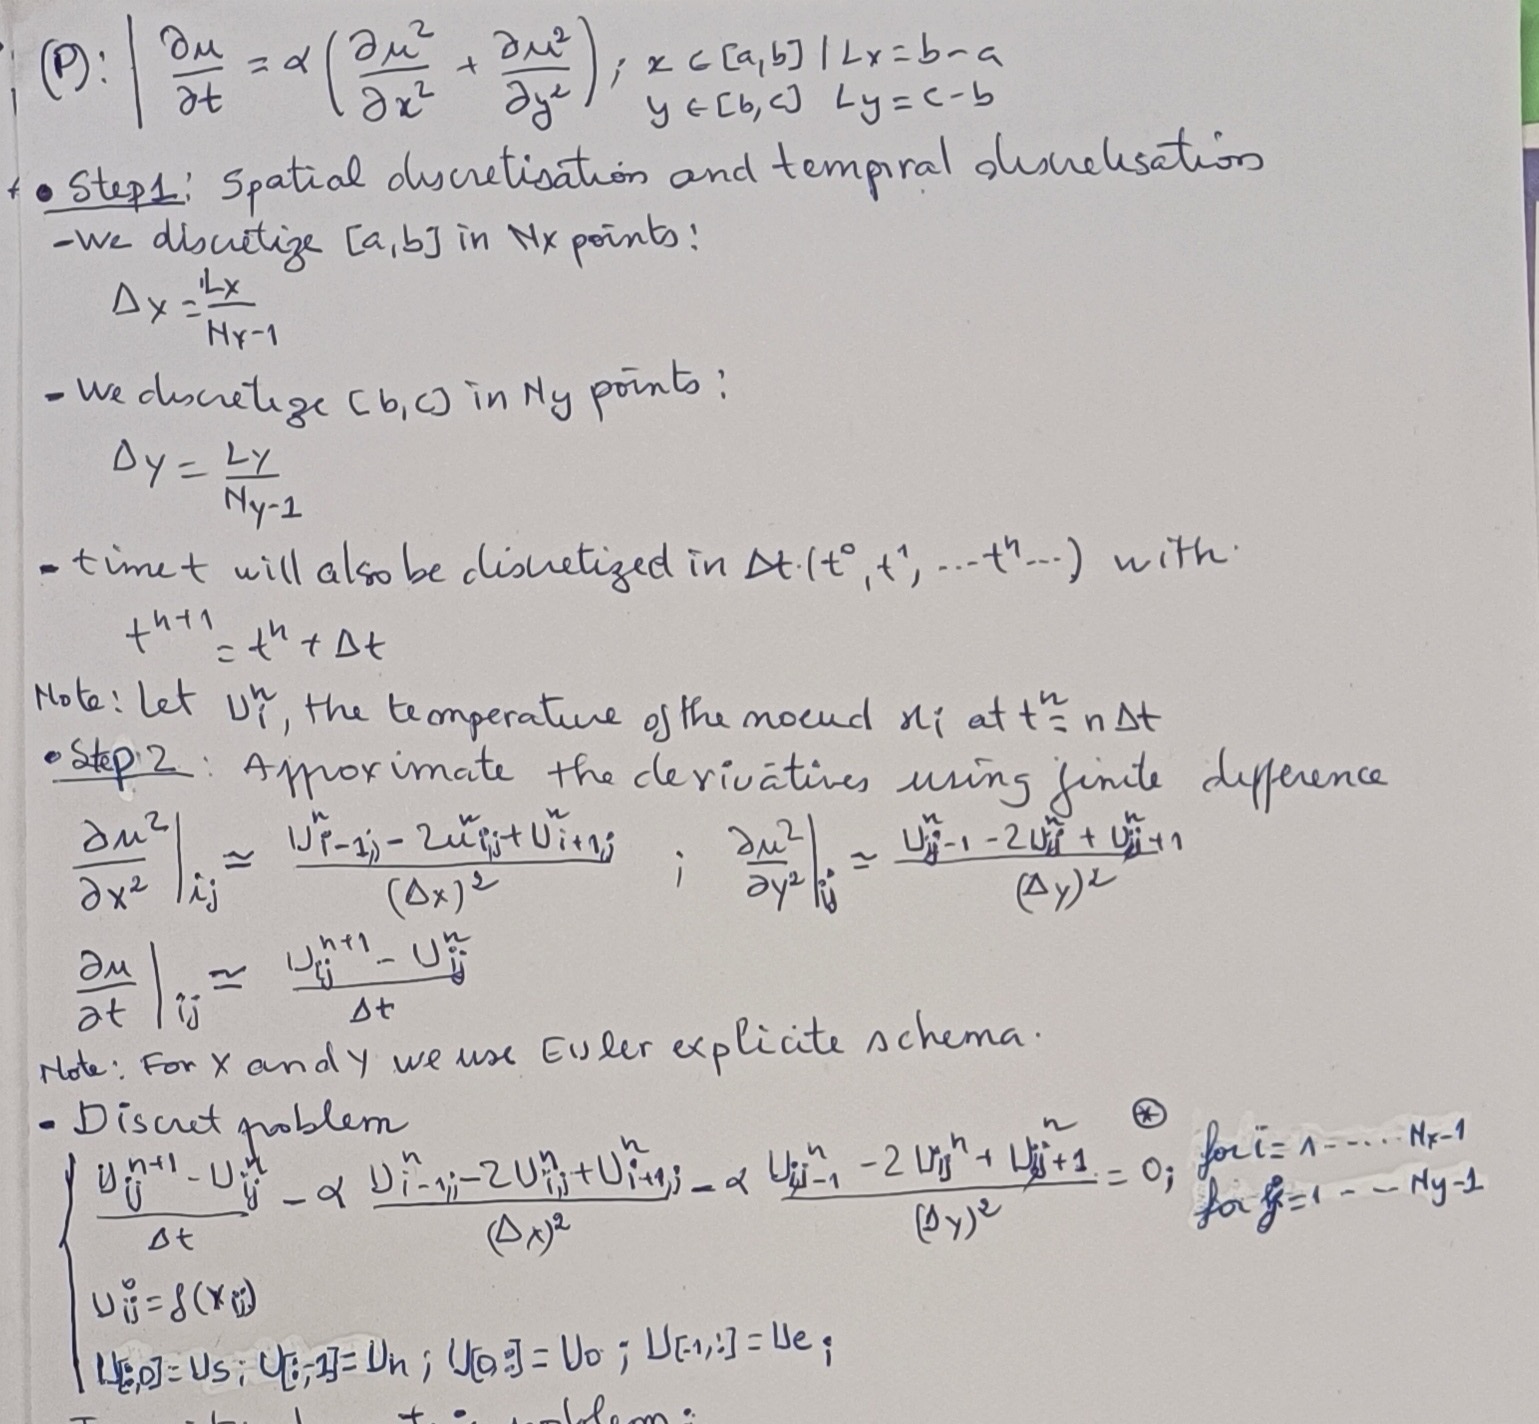 (P): | ∂u/∂t = α(∂u²/∂x² + ∂u²/∂y²); x ∈ [a,b] | Lx = b-a
y ∈ [b,c] Ly = c-b
• Step1: Spatial discretisation and tempral discretisation
- We discretize [a,b] in Nx points:
Δx = Lx/Nx-1
- We discretize [b,c] in Ny points:
Δy = Ly/Ny-1
- time t will also be discretized in Δt.(t⁰, t¹, ...tⁿ...) with
tⁿ⁺¹ = tⁿ + Δt
Note: Let Uᵢⁿ, the temperature of the noeud xi at tⁿ = nΔt
• Step 2: Approximate the derivatives using finite difference
∂u²/∂x² |ij ≃ (Uⁿi-1,j - 2uⁿi,j + Uⁿi+1,j)/(Δx)² ; ∂u²/∂y² |ij ≃ (Uⁿij-1 - 2Uⁿij + Uⁿij+1)/(Δy)²
∂u/∂t |ij ≃ (Uijⁿ⁺¹ - Uijⁿ)/Δt
Note: For x and y we use Euler explicite schema.
- Discret problem
(Uijⁿ⁺¹ - Uijⁿ)/Δt - α (Uⁿi-1,j - 2Uⁿi,j + Uⁿi+1,j)/(Δx)² - α (Uij-1ⁿ - 2Uijⁿ + Uij+1ⁿ)/(Δy)² = 0; ⊛ for i = 1 ----- Nx-1
for j = 1 -- - Ny-1
U⁰ij = f(xij)
U[:,0] = Us; U[:,-1] = Un; U[0,:] = Uo; U[-1,:] = Ue;